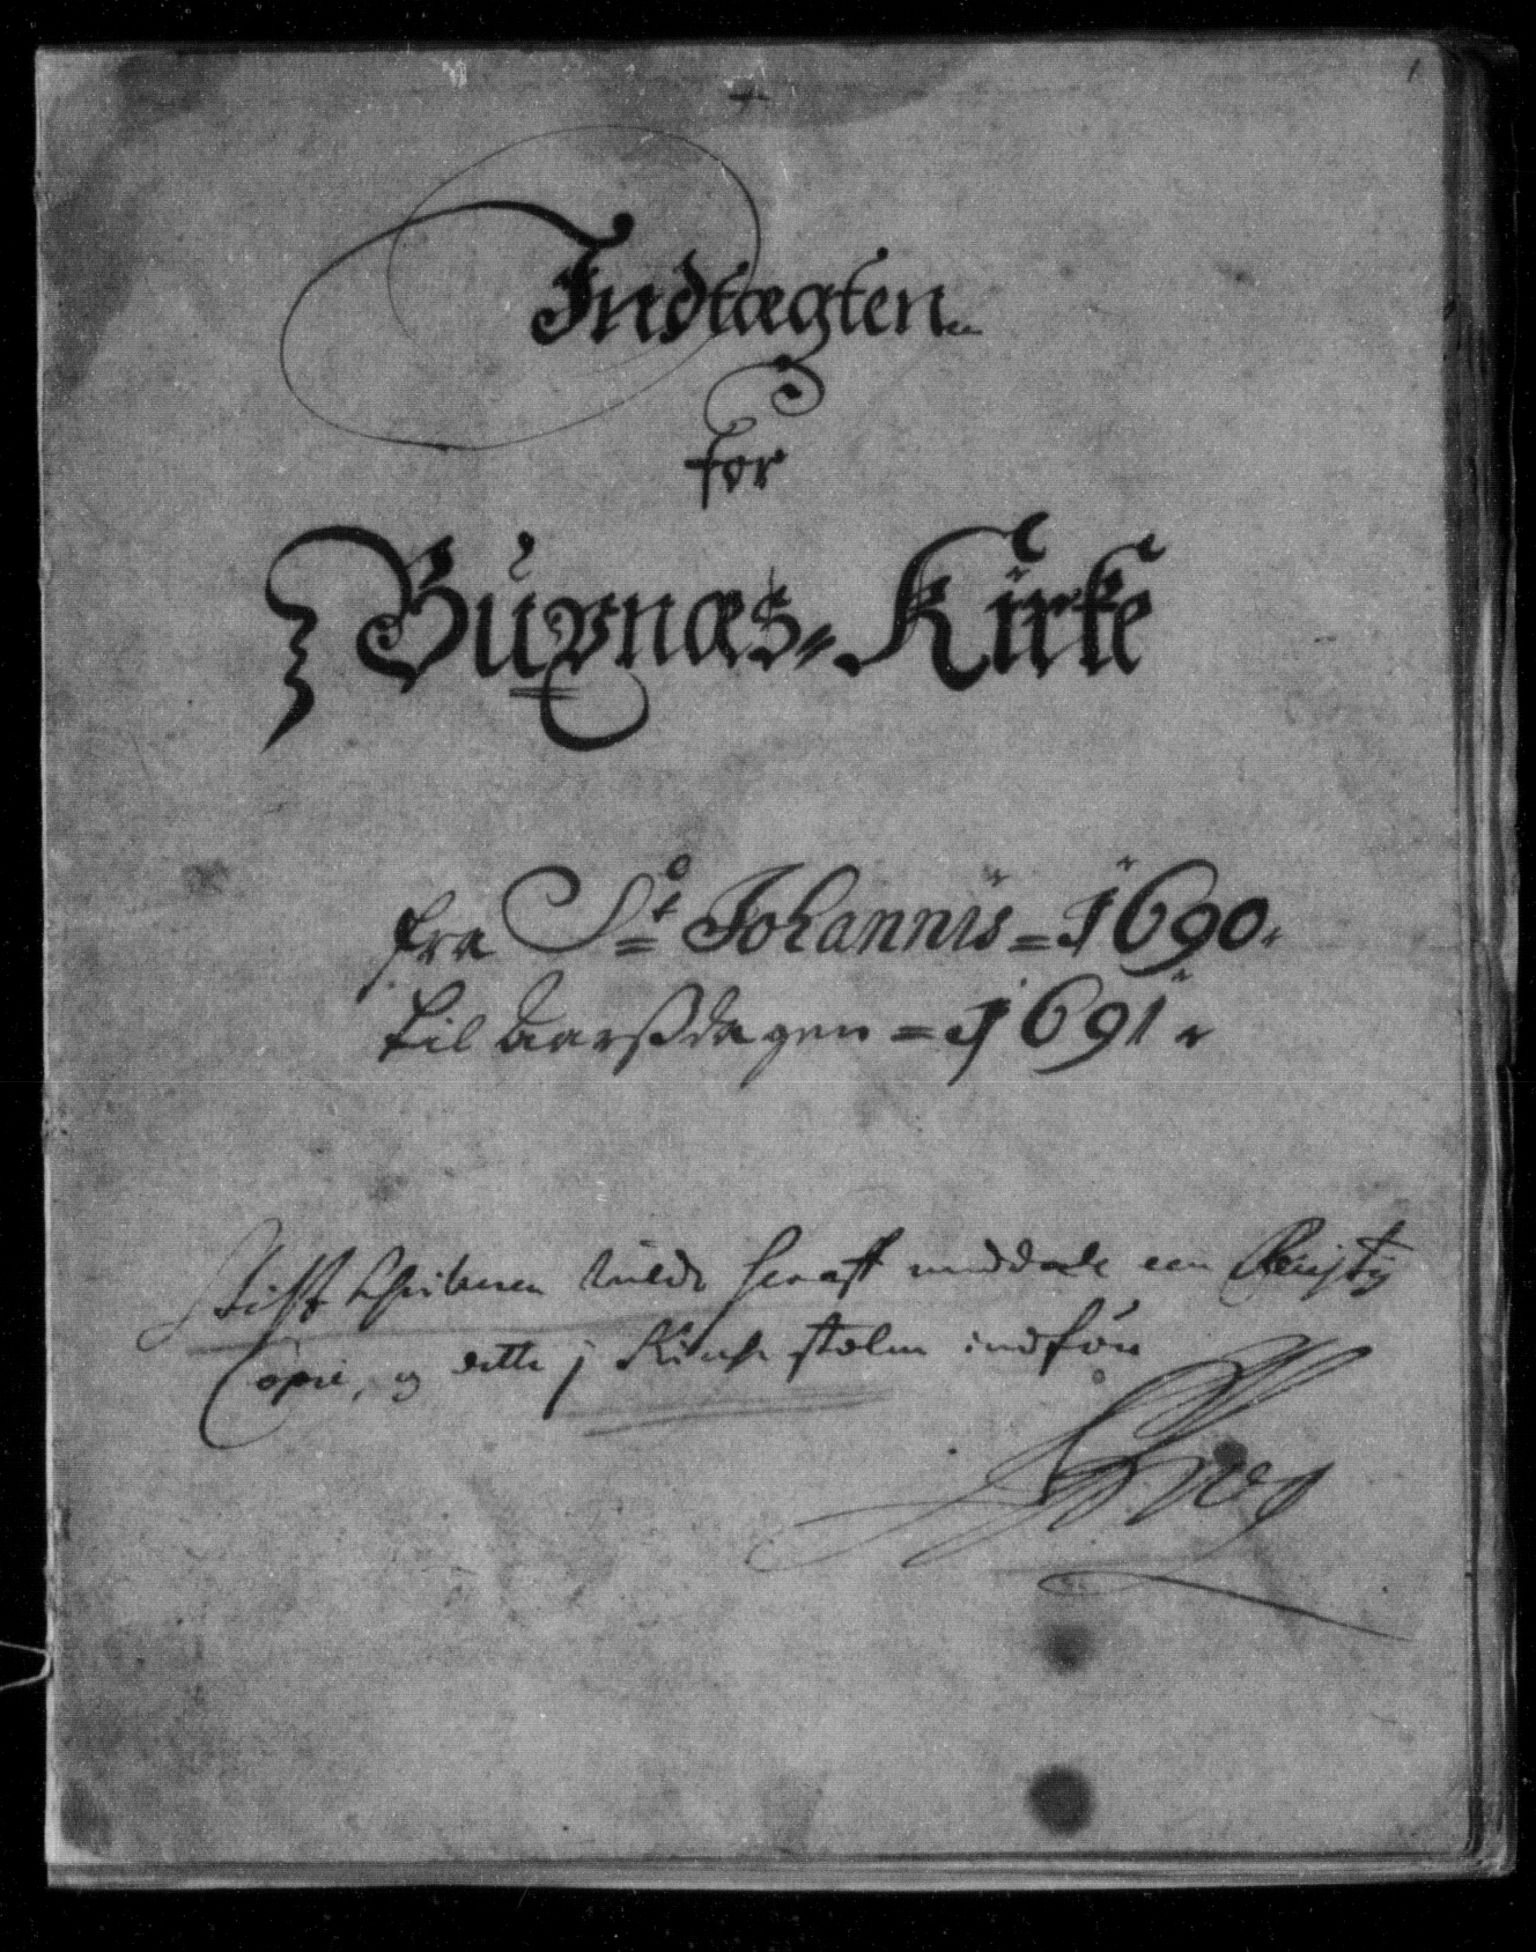 1
Indtægten
for
Buxnæs Kirke
fra St Johannis 1690
til Aarsdagen 1691
Stiftschrifueren vilde heraff meddele een Rigtig
Copie, og dette j Kirche stolen indføre